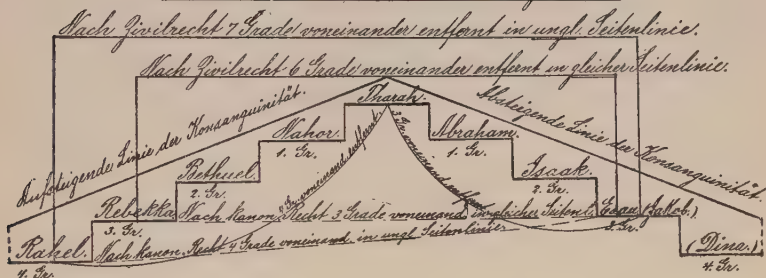 Nach Zivilrecht 7 Grade voneinander entfernt in ungl. Seitenlinie.
Nach Zivilrecht 6 Grade voneinander entfernt in gleicher Seitenlinie.
Tharah.
Aufsteigende Linie der Konsanguinität.
Absteigende Linie der Konsanguinität.
Nahor
1. Gr.
Abraham.
1. Gr.
Bethuel.
2. Gr.
Isaak.
2. Gr.
3 Gr. voneinand entfernt
3 Gr. voneinand entfernt
Rebekka
3. Gr.
Nach kanon. Recht 3 Grade voneinand. in gleicher Seitenl.
Esau (Jakob.)
3. Gr.
Nach kanon. Recht 4 Grade voneinand. in ungl. Seitenlinie.
Rahel.
4. Gr.
(Dina.)
4. Gr.